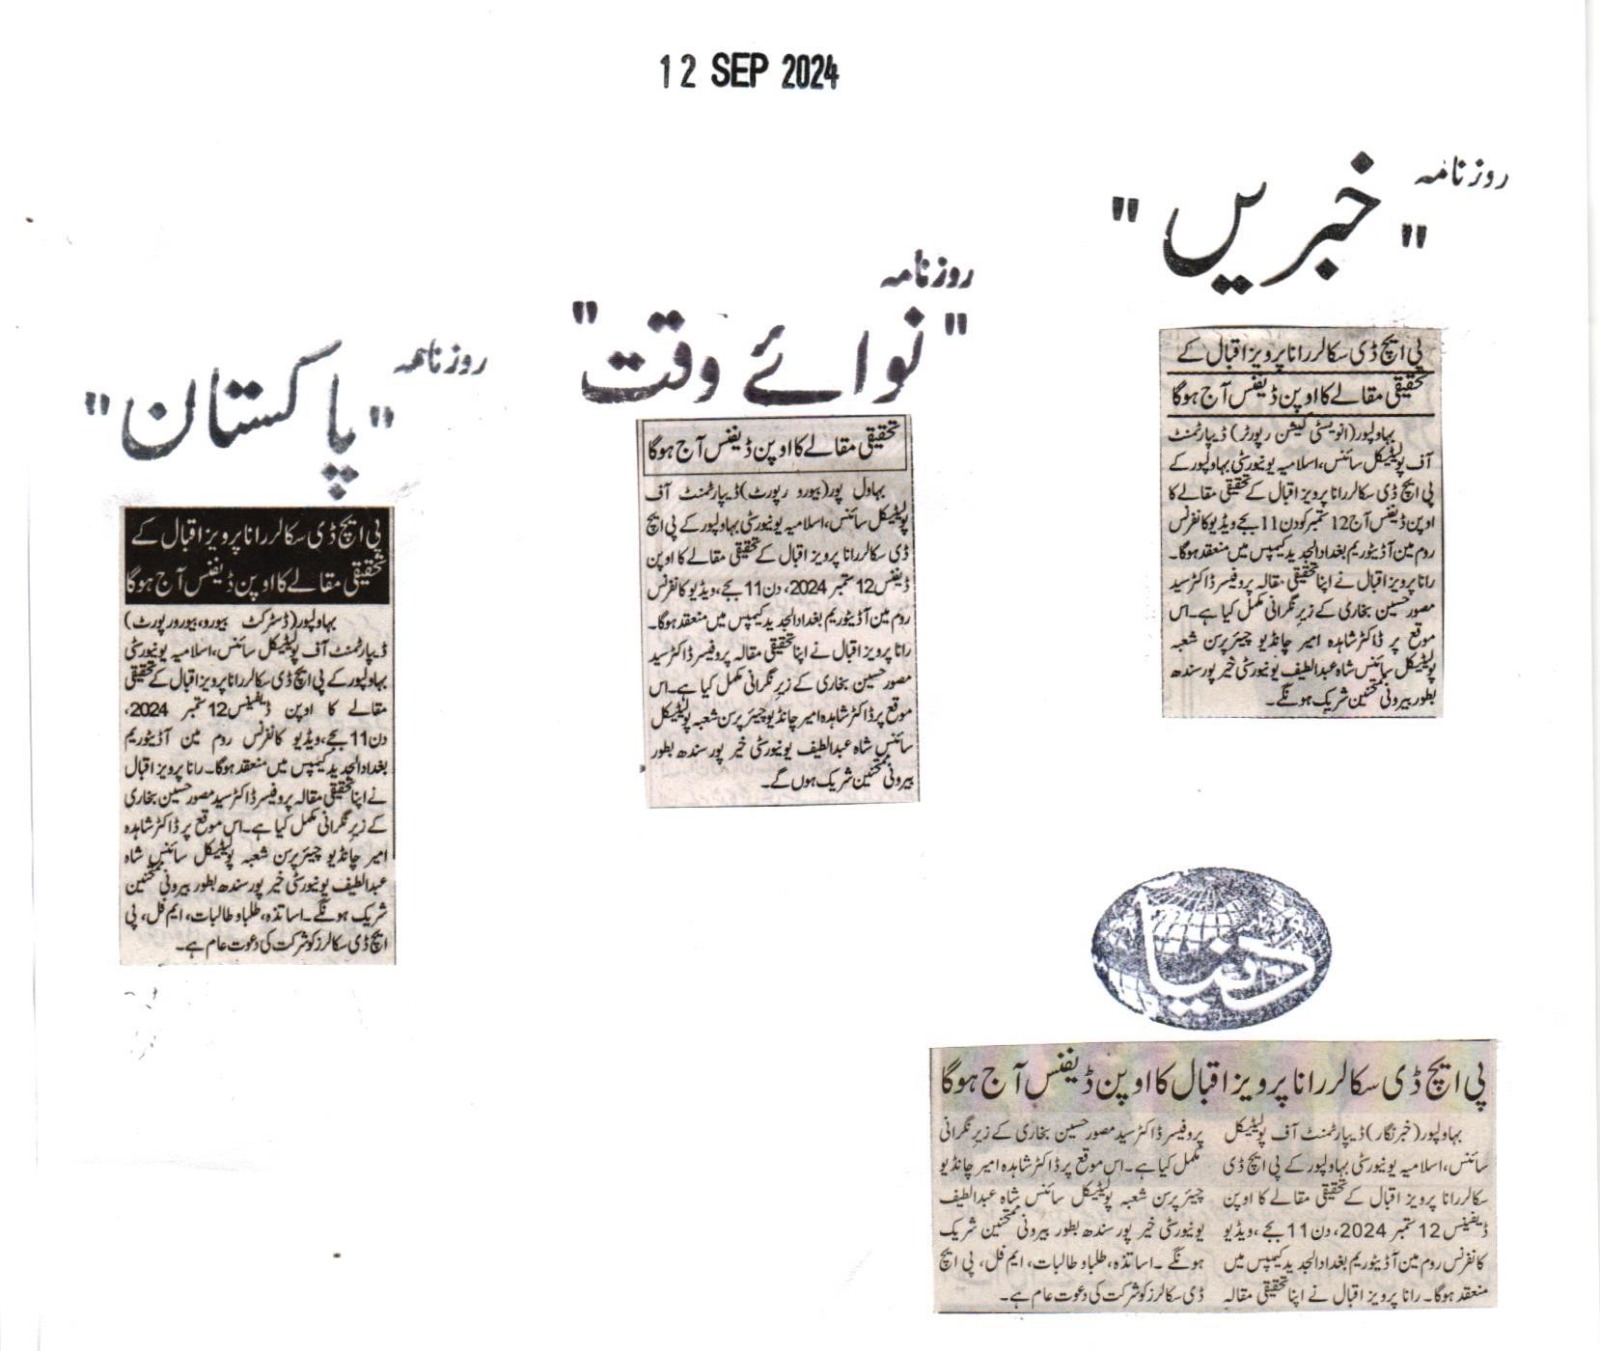 12 SEP 2024
روزنامہ
"خبریں"
پی ایچ ڈی سکالر رانا پرویز اقبال کے
تحقیقی مقالے کا اوپن ڈیفنس آج ہوگا
بہاولپور (انویسٹی گیشن رپورٹر) ڈیپارٹمنٹ
آف پولیٹیکل سائنس، اسلامیہ یونیورسٹی بہاولپور کے
پی ایچ ڈی سکالر رانا پرویز اقبال کے تحقیقی مقالے کا
اوپن ڈیفنس آج 12 ستمبر کو دن 11 بجے ویڈیو کانفرنس
روم مین آڈیٹوریم بغداد الجدید کیمپس میں منعقد ہوگا۔
رانا پرویز اقبال نے اپنا تحقیقی مقالہ پروفیسر ڈاکٹر سید
مصور حسین بخاری کے زیر نگرانی مکمل کیا ہے۔ اس
موقع پر ڈاکٹر شاہدہ امیر چانڈیو چیئرپرسن شعبہ
پولیٹیکل سائنس شاہ عبدالطیف یونیورسٹی خیرپور سندھ
بطور بیرونی ممتحنین شریک ہونگے۔
روزنامہ
"نوائے وقت"
تحقیقی مقالے کا اوپن ڈیفنس آج ہوگا
بہاول پور (بیورو رپورٹ) ڈیپارٹمنٹ آف
پولیٹیکل سائنس، اسلامیہ یونیورسٹی بہاولپور کے پی ایچ
ڈی سکالر رانا پرویز اقبال کے تحقیقی مقالے کا اوپن
ڈیفنس 12 ستمبر 2024، دن 11 بجے، ویڈیو کانفرنس
روم مین آڈیٹوریم بغداد الجدید کیمپس میں منعقد ہوگا۔
رانا پرویز اقبال نے اپنا تحقیقی مقالہ پروفیسر ڈاکٹر سید
مصور حسین بخاری کے زیر نگرانی مکمل کیا ہے۔ اس
موقع پر ڈاکٹر شاہدہ امیر چانڈیو چیئرپرسن شعبہ پولیٹیکل
سائنس شاہ عبدالطیف یونیورسٹی خیر پور سندھ بطور
بیرونی ممتحنین شریک ہوں گے۔
روزنامہ
"پاکستان"
پی ایچ ڈی سکالر رانا پرویز اقبال کے
تحقیقی مقالے کا اوپن ڈیفنس آج ہوگا
بہاولپور (ڈسٹرکٹ بیورو، بیورورپورٹ)
ڈیپارٹمنٹ آف پولیٹیکل سائنس، اسلامیہ یونیورسٹی
بہاولپور کے پی ایچ ڈی سکالر رانا پرویز اقبال کے تحقیقی
مقالے کا اوپن ڈیفینس 12 ستمبر 2024،
دن 11 بجے، ویڈیو کانفرنس روم مین آڈیٹوریم
بغداد الجدید کیمپس میں منعقد ہوگا۔ رانا پرویز اقبال
نے اپنا تحقیقی مقالہ پروفیسر ڈاکٹر سید مصور حسین بخاری
کے زیر نگرانی مکمل کیا ہے۔ اس موقع پر ڈاکٹر شاہدہ
امیر چانڈیو چیئرپرسن شعبہ پولیٹیکل سائنس شاہ
عبدالطیف یونیورسٹی خیر پور سندھ بطور بیرونی ممتحنین
شریک ہونگے۔ اساتذہ، طلبا و طالبات، ایم فل، پی
ایچ ڈی سکالرز کو شرکت کی دعوت عام ہے۔
دنیا
پی ایچ ڈی سکالر رانا پرویز اقبال کا اوپن ڈیفنس آج ہوگا
بہاولپور (خبرنگار) ڈیپارٹمنٹ آف پولیٹیکل
سائنس، اسلامیہ یونیورسٹی بہاولپور کے پی ایچ ڈی
سکالر رانا پرویز اقبال کے تحقیقی مقالے کا اوپن
ڈیفینس 12 ستمبر 2024، دن 11 بجے، ویڈیو
کانفرنس روم مین آڈیٹوریم بغداد الجدید کیمپس میں
منعقد ہوگا۔ رانا پرویز اقبال نے اپنا تحقیقی مقالہ
پروفیسر ڈاکٹر سید مصور حسین بخاری کے زیر نگرانی
مکمل کیا ہے۔ اس موقع پر ڈاکٹر شاہدہ امیر چانڈیو
چیئرپرسن شعبہ پولیٹیکل سائنس شاہ عبدالطیف
یونیورسٹی خیر پور سندھ بطور بیرونی ممتحنین شریک
ہونگے۔ اساتذہ، طلبا و طالبات، ایم فل، پی ایچ
ڈی سکالرز کو شرکت کی دعوت عام ہے۔